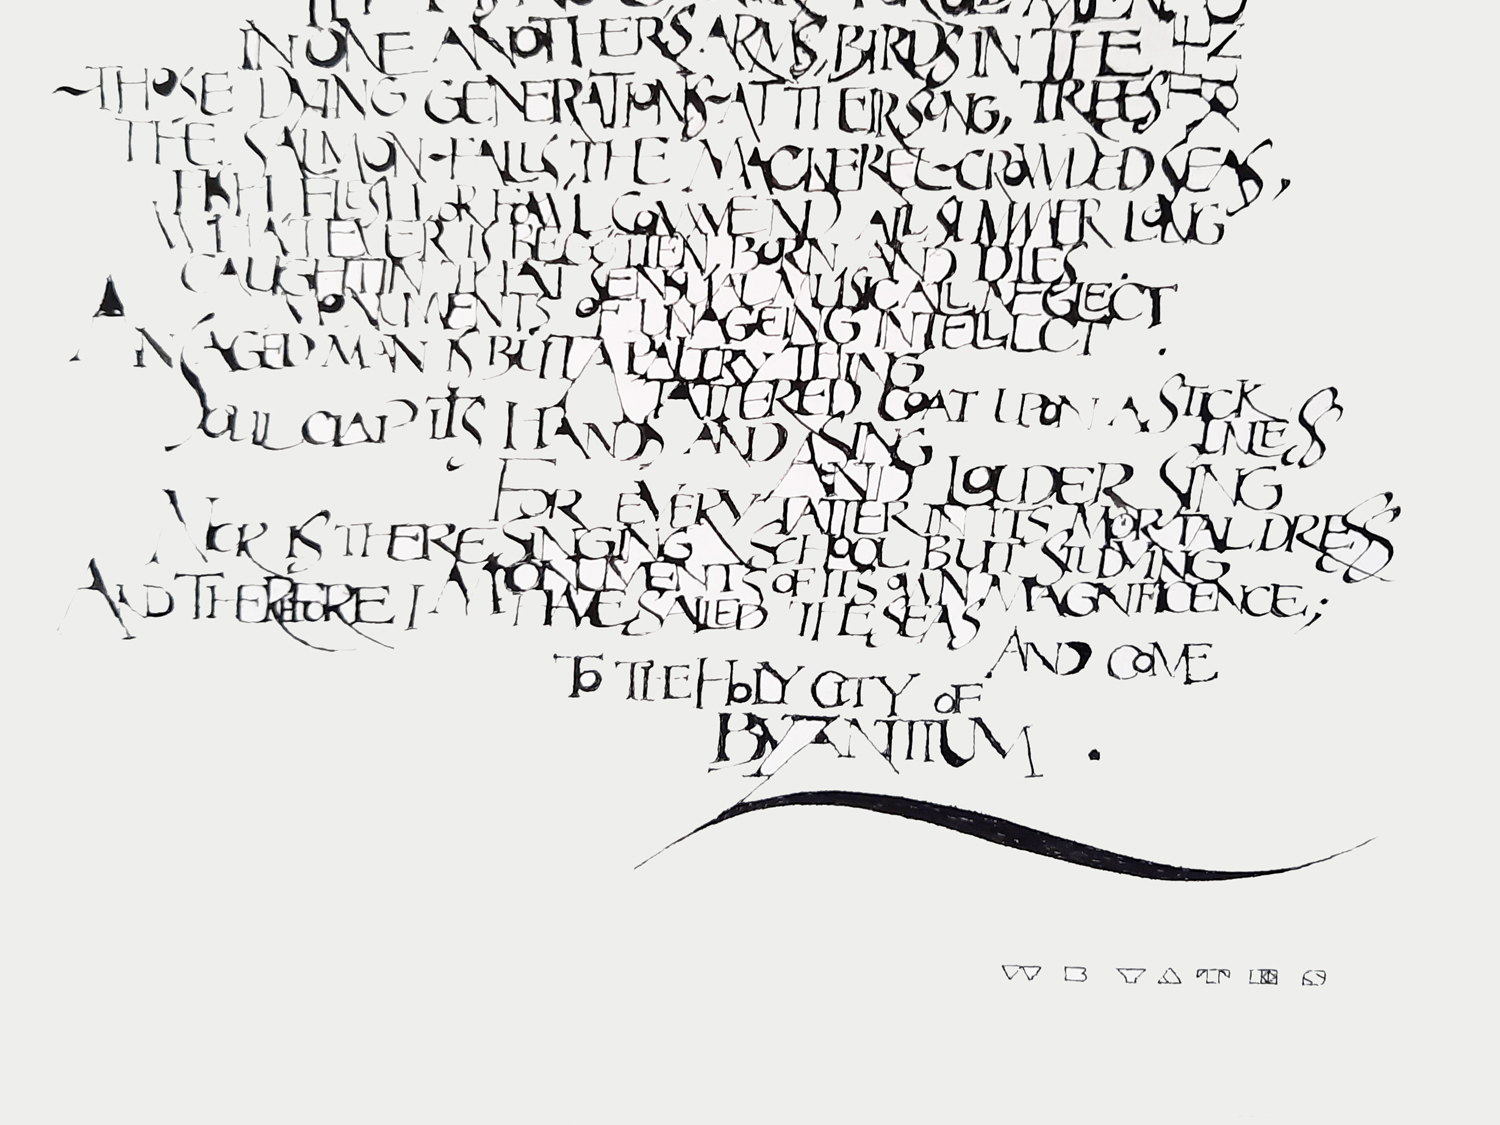 IN ONE ANOTHER'S ARMS, BIRDS IN THE
~THOSE DYING GENERATIONS~AT THEIR SONG, TREES
THE SALMON-FALLS, THE MACKEREL-CROWDED SEAS,
FISH FLESH OR FOWL COMMEND ALL SUMMER LONG
WHATEVER IS BEGOTTEN BORN AND DIES.
CAUGHT IN THAT SENSUAL MUSIC ALL NEGLECT
MONUMENTS OF UNAGEING INTELLECT.
AN AGED MAN IS BUT A PALTRY THING
A TATTERED COAT UPON A STICK
UNLESS
SOUL CLAP ITS HANDS AND SING
AND LOUDER SING
FOR EVERY TATTER IN ITS MORTAL DRESS
NOR IS THERE SINGING SCHOOL BUT STUDYING
MONUMENTS OF ITS OWN MAGNIFICENCE;
AND THEREFORE I HAVE SAILED THE SEAS
AND COME
TO THE HOLY CITY OF
BYZANTIUM.
W B YATES